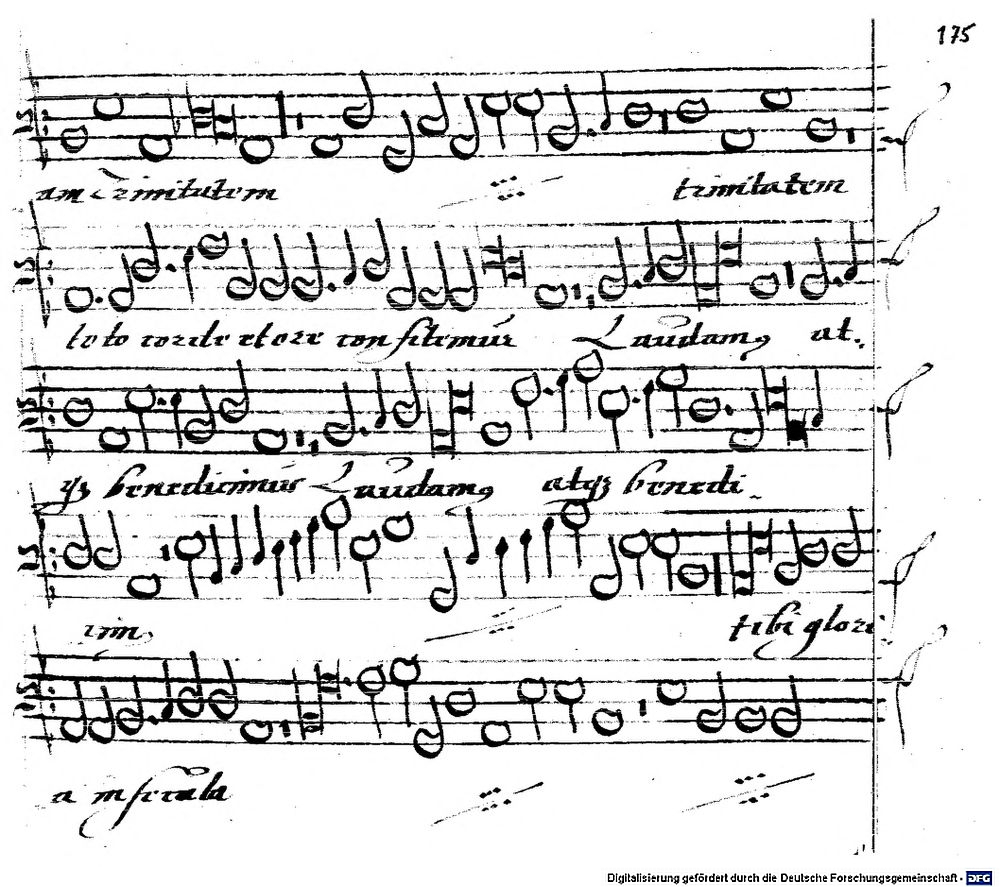 175
am Trinitatem trinitatem
toto corde et ore confitemur Laudamꝰ at.
qꝫ benedicimus Laudamꝰ atqꝫ benedi_
cimꝰ tibi glori
a in secula
Digitalisierung gefördert durch die Deutsche Forschungsgemeinschaft - DFG